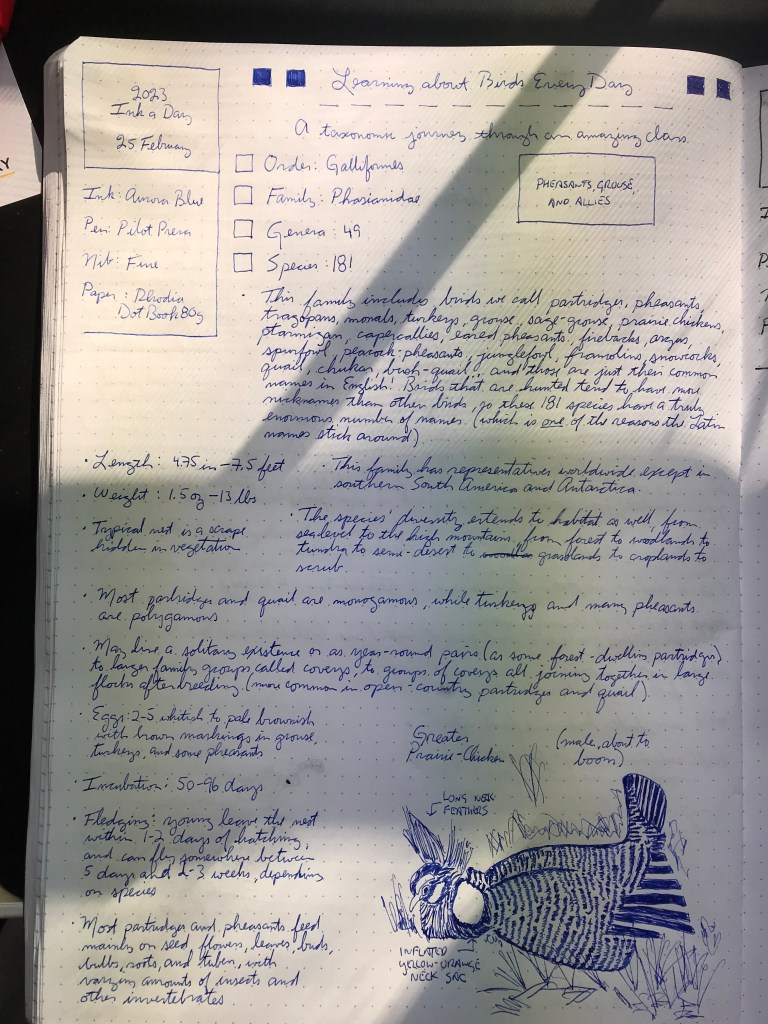 2023
Ink a Day
25 February
Ink: Aurora Blue
Pen: Pilot Prera
Nib: Fine
Paper: Rhodia
Dot Book 80g
Learning about Birds Every Day
A taxonomic journey through an amazing class.
Order: Galliformes
Family: Phasianidae
Genera: 49
Species: 181
PHEASANTS, GROUSE,
AND ALLIES
· This family includes birds we call partridges, pheasants,
tragopans, monals, turkeys, grouse, sage-grouse, prairie chickens,
ptarmigan, capercallies, eared pheasants, firebacks, arguses,
spurfowl, peacock-pheasants, junglefowl, francolins, snowcocks,
quail, chukar, bush-quail, and those are just their common
names in English! Birds that are hunted tend to have more
nicknames than other birds, so these 181 species have a truly
enormous number of names. (which is one of the reasons the Latin
names stick around)
· Length: 4.75 in - 7.5 feet
· Weight: 1.5 oz - 13 lbs
· Typical nest is a scrape
hidden in vegetation
· This family has representatives worldwide except in
southern South America and Antarctica.
· The species' diversity extends to habitat as well, from
sea level to the high mountains, from forest to woodlands to
tundra to semi-desert to grasslands to croplands to
scrub.
· Most partridges and quail are monogamous, while turkeys and many pheasants
are polygamous
· May live a solitary existence or as year-round pairs (as some forest-dwelling partridges)
to larger family groups called coveys, to groups of coveys all joining together in large
flocks after breeding. (more common in open-country partridges and quail)
· Eggs: 2-5 whitish to pale brownish
with brown markings in grouse,
turkeys, and some pheasants
· Incubation: 50-96 days
· Fledging: young leave the nest
within 1-2 days of hatching,
and can fly somewhere between
5 days and 2-3 weeks, depending
on species
· Most partridges and pheasants feed
mainly on seed, flowers, leaves, buds,
bulbs, roots, and tubers, with
varying amounts of insects and
other invertebrates
Greater
Prairie-Chicken
(male, about to
boom)
LONG NECK
FEATHERS
INFLATED
YELLOW-ORANGE
NECK SAC